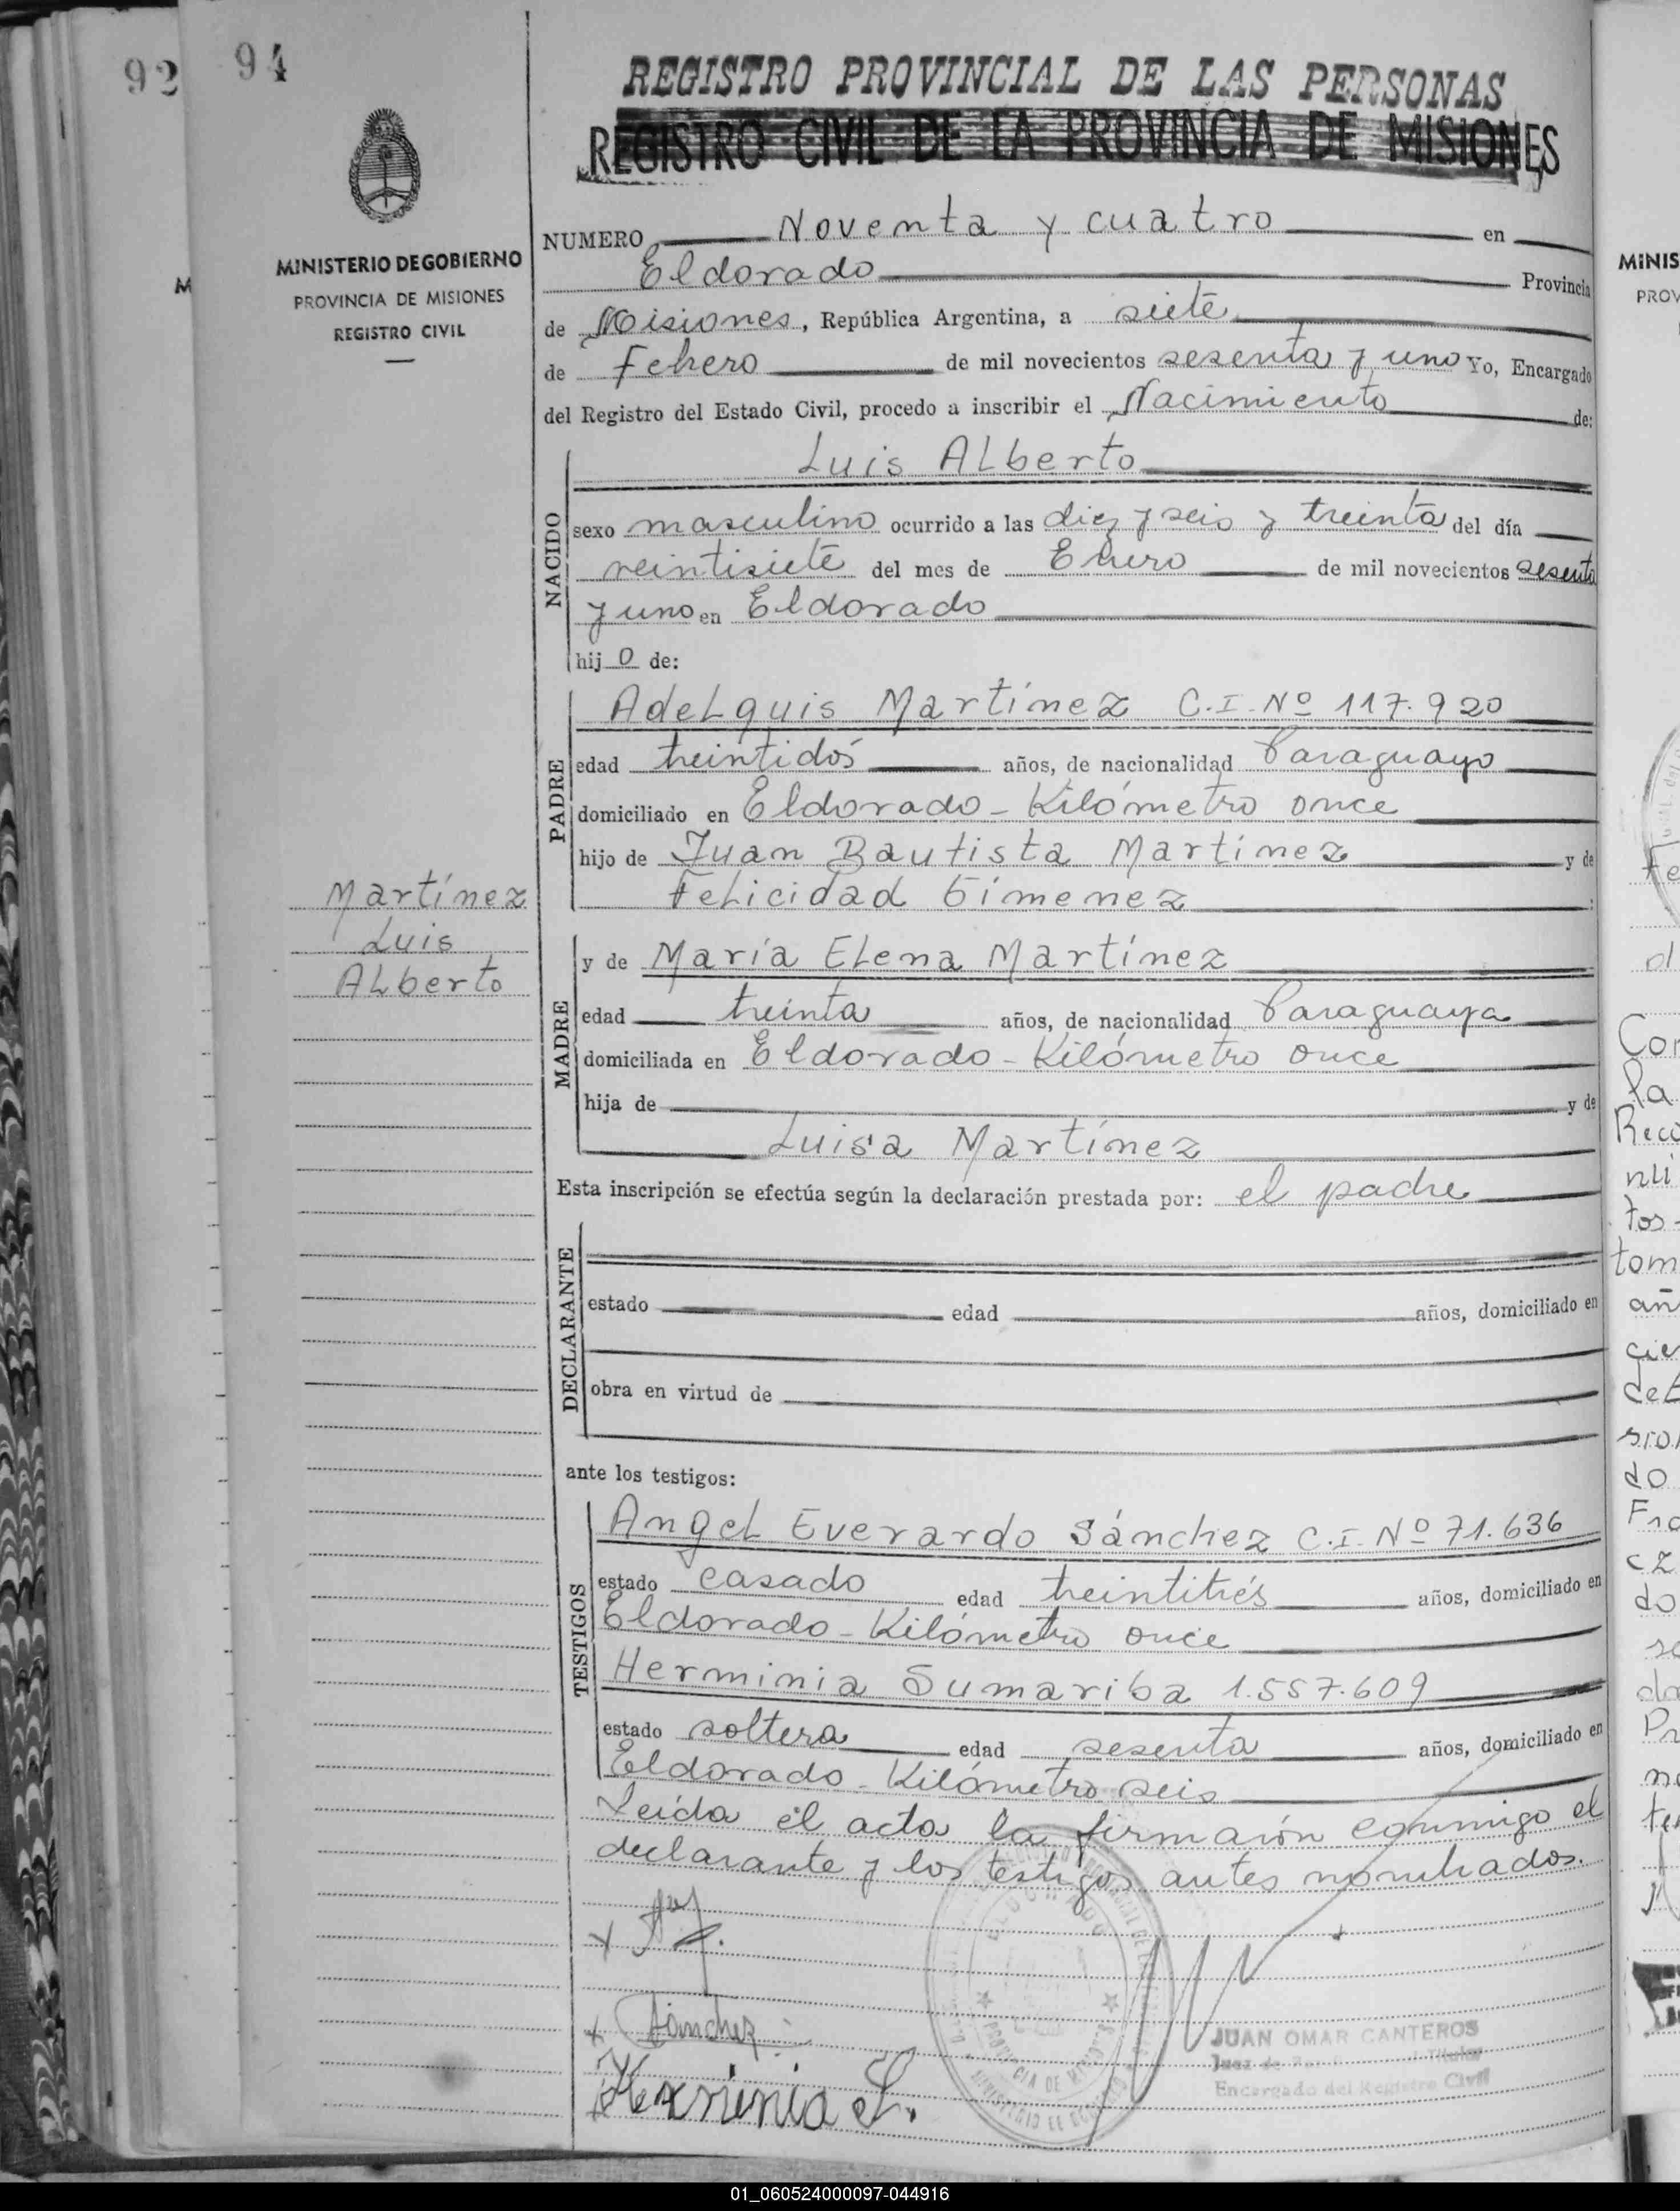 92
94
REGISTRO PROVINCIAL DE LAS PERSONAS
REGISTRO CIVIL DE LA PROVINCIA DE MISIONES
MINISTERIO DE GOBIERNO
PROVINCIA DE MISIONES
REGISTRO CIVIL
NUMERO Noventa y cuatro en
Eldorado Provincia
de Misiones, República Argentina, a siete
de Febrero de mil novecientos sesenta y uno Yo, Encargado
del Registro del Estado Civil, procedo a inscribir el Nacimiento de:
NACIDO
Luis ALberto
sexo masculino ocurrido a las diez y seis y treinta del día
veintisiete del mes de Enero de mil novecientos sesenta
y uno en Eldorado
hij o de:
PADRE
AdeLquis Martínez C.I. Nº 117.920
edad treintidós años, de nacionalidad Paraguayo
domiciliado en Eldorado - Kilómetro once
hijo de Juan Bautista Martínez y de
FeLicidad Gimenez
Martínez
Luis
ALberto
MADRE
y de María ELena Martínez
edad treinta años, de nacionalidad Paraguaya
domiciliada en Eldorado - Kilómetro once
hija de y de
Luisa Martínez
Esta inscripción se efectúa según la declaración prestada por: el padre
DECLARANTE
estado edad años, domiciliado en
obra en virtud de
ante los testigos:
TESTIGOS
AngeL Everardo Sánchez C.I. Nº 71.636
estado casado edad treintitrés años, domiciliado en
Eldorado - Kilómetro once
Herminia Sumariba 1.557.609
estado soltera edad sesenta años, domiciliado en
Eldorado - Kilómetro seis
Leída el acta la firmarón conmigo el
declarante y los testigos antes nombrados.
Sánchez
Herminia S.
JUAN OMAR CANTEROS
Juez de Titular
Encargado del Registro Civil
01_060524000097-044916